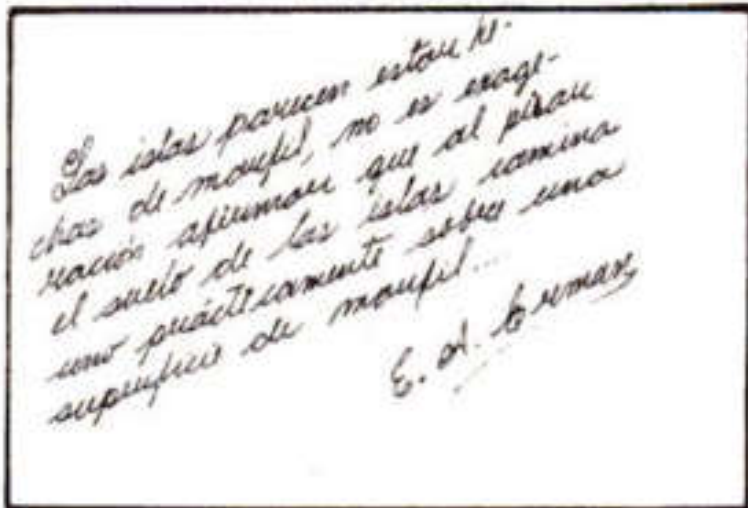 Las islas parecen estar he-
chas de marfil, no es exage-
ración afirmar que al pisar
el suelo de las islas camina
uno prácticamente sobre una
superficie de marfil...
E. A. Erman